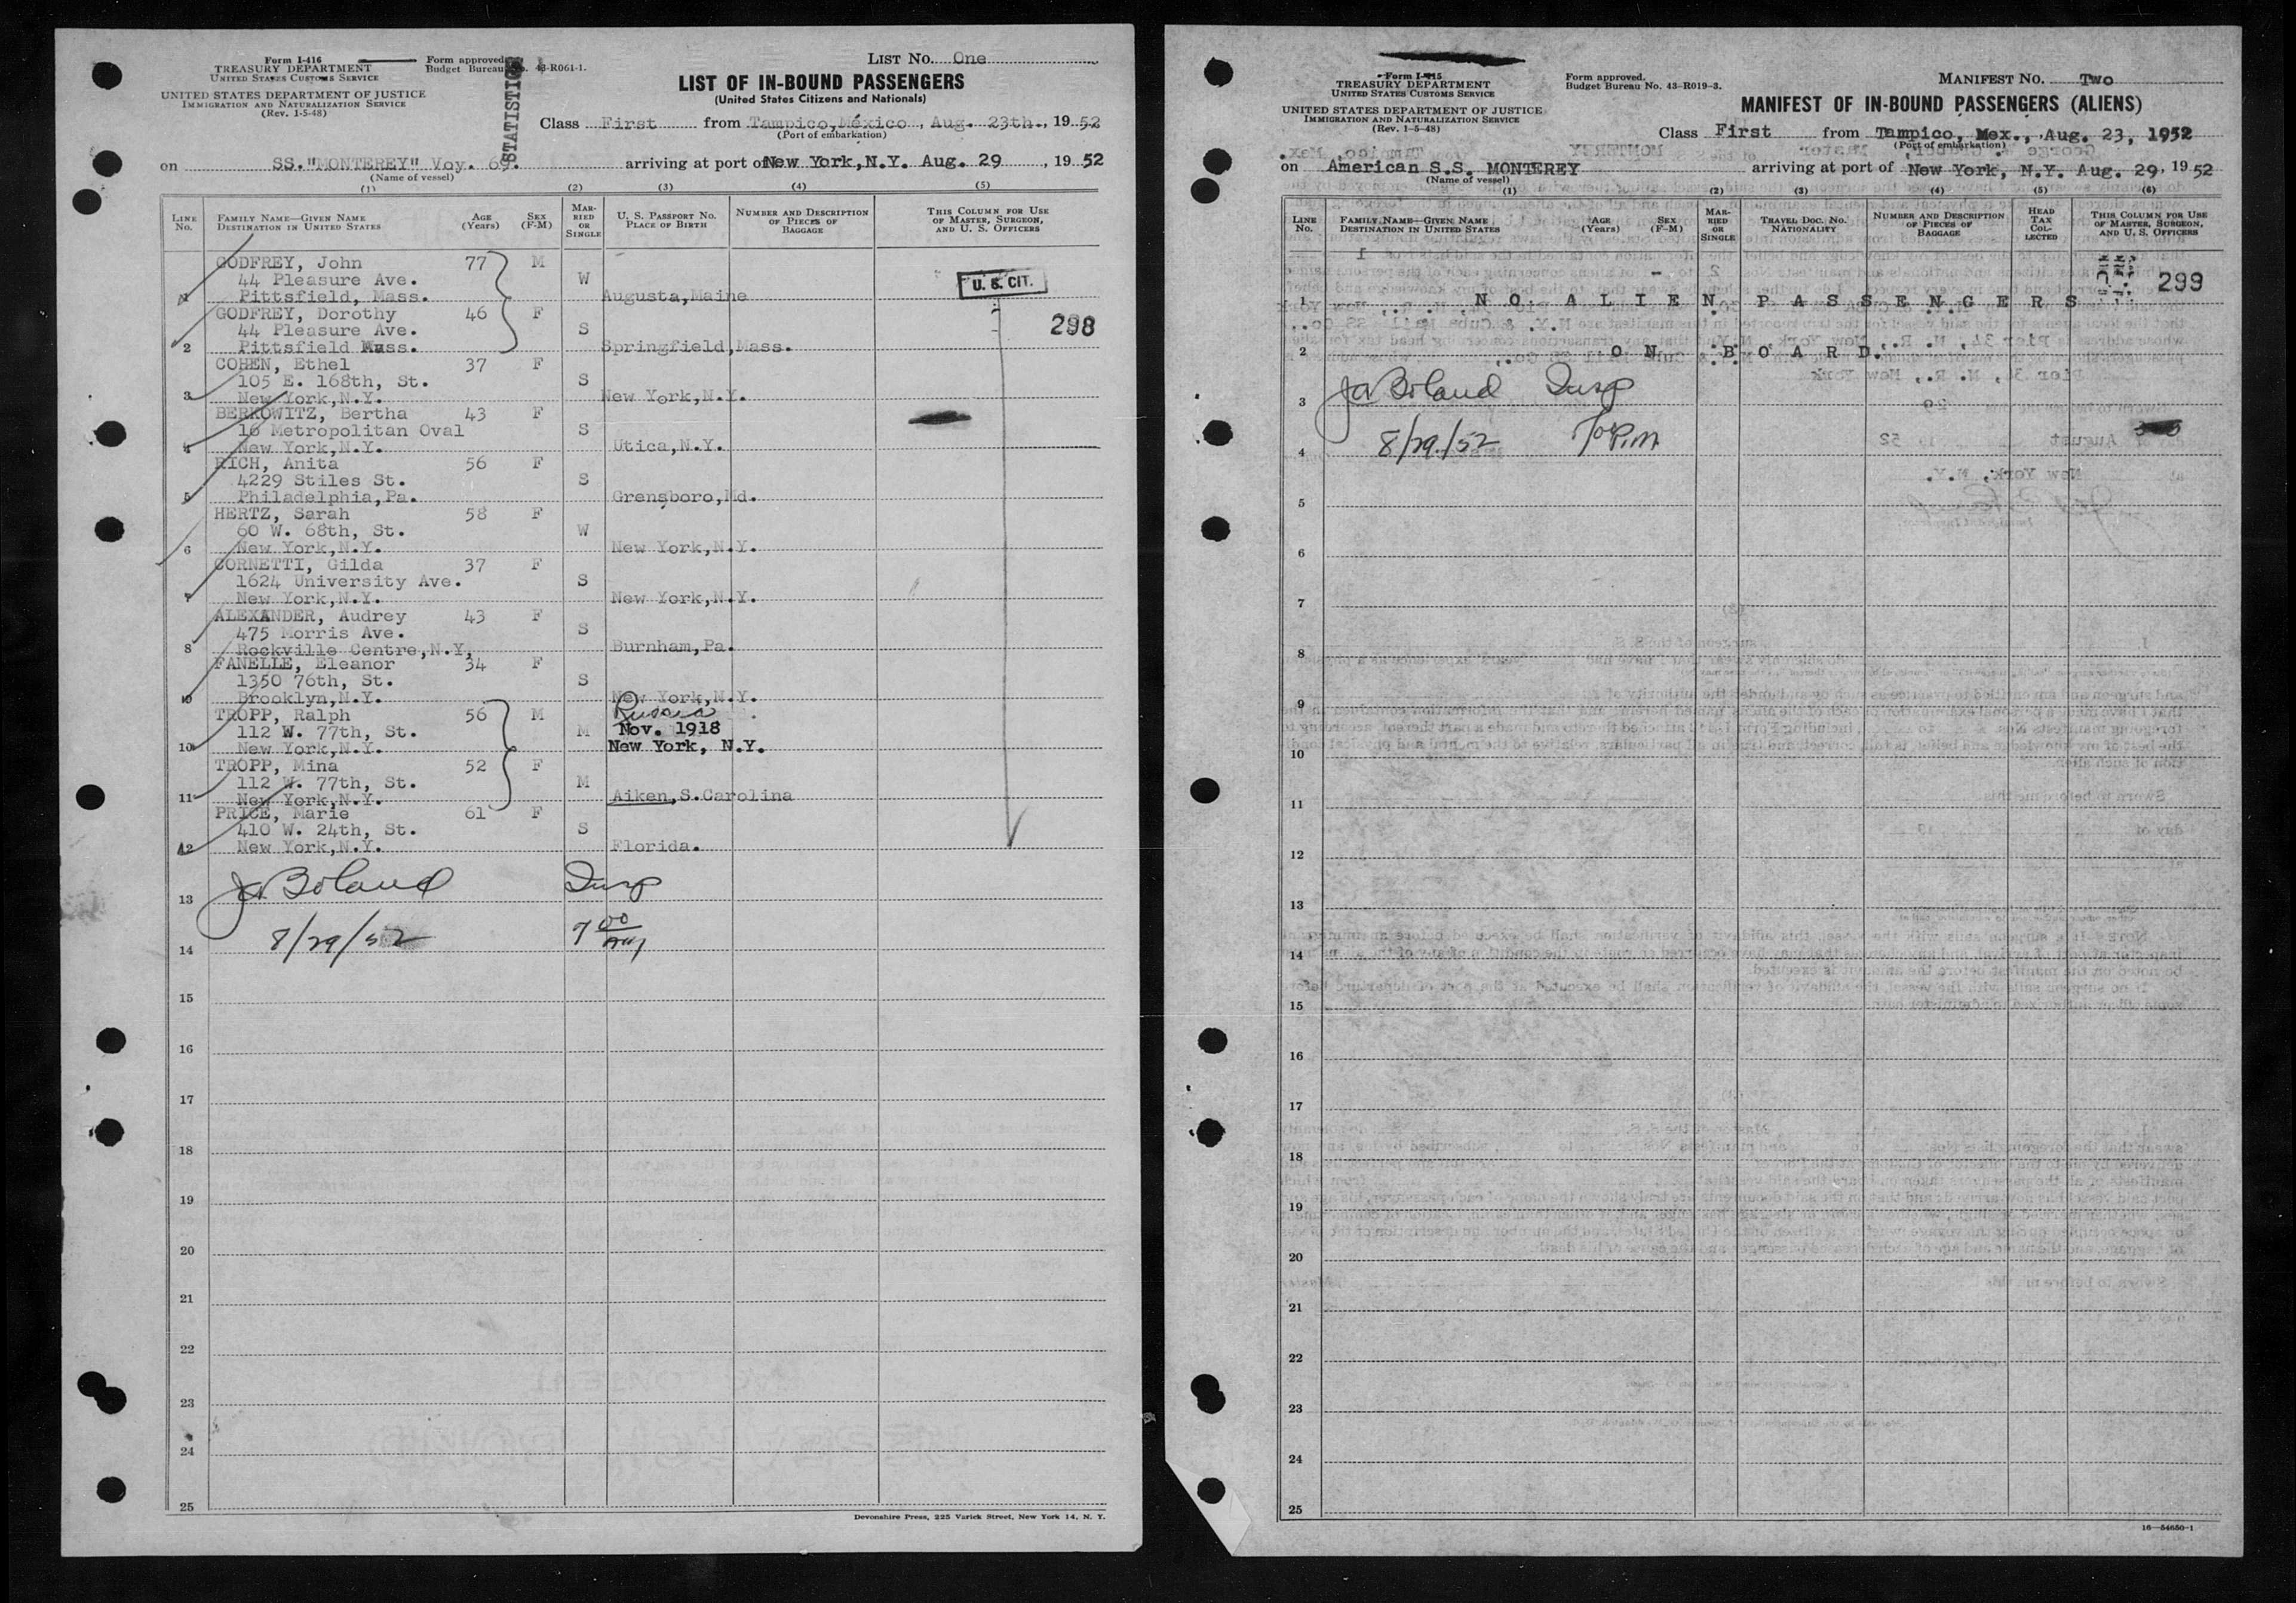 Form I-416
TREASURY DEPARTMENT
UNITED STATES CUSTOMS SERVICE
UNITED STATES DEPARTMENT OF JUSTICE
IMMIGRATION AND NATURALIZATION SERVICE
(Rev. 1-5-48)
Form approved.
Budget Bureau No. 43-R061-1.
STATISTICS
LIST No. One
LIST OF IN-BOUND PASSENGERS
(United States Citizens and Nationals)
Class First from Tampico, México, Aug. 23th., 19 52
(Port of embarkation)
on SS."MONTEREY" Voy. 69. arriving at port of New York, N.Y. Aug. 29, 19 52
(Name of vessel)
(1) (2) (3) (4) (5)
LINE No. FAMILY NAME—GIVEN NAME DESTINATION IN UNITED STATES AGE (Years) SEX (F-M) MARRIED OR SINGLE U. S. PASSPORT No. PLACE OF BIRTH NUMBER AND DESCRIPTION OF PIECES OF BAGGAGE THIS COLUMN FOR USE OF MASTER, SURGEON, AND U. S. OFFICERS
GODFREY, John 77 M
44 Pleasure Ave. W U. S. CIT.
1 Pittsfield, Mass. Augusta, Maine
GODFREY, Dorothy 46 F
44 Pleasure Ave. S 298
2 Pittsfield Mass. Springfield, Mass.
COHEN, Ethel 37 F
105 E. 168th, St. S
3 New York, N.Y. New York, N.Y.
BERKOWITZ, Bertha 43 F
16 Metropolitan Oval S
4 New York, N.Y. Utica, N.Y.
RICH, Anita 56 F
4229 Stiles St. S
5 Philadelphia, Pa. Grensboro, Md.
HERTZ, Sarah 58 F
60 W. 68th, St. W
6 New York, N.Y. New York, N.Y.
CORNETTI, Gilda 37 F
1624 University Ave. S
7 New York, N.Y. New York, N.Y.
ALEXANDER, Audrey 43 F
475 Morris Ave. S
8 Rockville Centre, N.Y, Burnham, Pa.
FANELLE, Eleanor 34 F
1350 76th, St. S
9 Brooklyn, N.Y. New York, N.Y.
TROPP, Ralph 56 M Russia
112 W. 77th, St. M Nov. 1918
10 New York, N.Y. New York, N.Y.
TROPP, Mina 52 F
112 W. 77th, St. M
11 New York, N.Y. Aiken, S.Carolina
PRICE, Marie 61 F
410 W. 24th, St. S
12 New York, N.Y. Florida.
Ja Boland Insp
13
8/29/52 7 00
14
15
16
17
18
19
20
21
22
23
24
25
Devonshire Press, 225 Varick Street, New York 14, N. Y.
Form I-415
TREASURY DEPARTMENT
UNITED STATES CUSTOMS SERVICE
UNITED STATES DEPARTMENT OF JUSTICE
IMMIGRATION AND NATURALIZATION SERVICE
(Rev. 1-5-48)
Form approved.
Budget Bureau No. 43-R019-3.
MANIFEST No. Two
MANIFEST OF IN-BOUND PASSENGERS (ALIENS)
Class First from Tampico, Mex., Aug. 23, 1952
(Port of embarkation)
on American S.S. MONTEREY arriving at port of New York, N.Y. Aug. 29, 19 52
(Name of vessel)
(1) (2) (3) (4) (5) (6)
LINE No. FAMILY NAME—GIVEN NAME DESTINATION IN UNITED STATES AGE (Years) SEX (F-M) MARRIED OR SINGLE TRAVEL DOC. No. NATIONALITY NUMBER AND DESCRIPTION OF PIECES OF BAGGAGE HEAD TAX COLLECTED THIS COLUMN FOR USE OF MASTER, SURGEON, AND U. S. OFFICERS
299
1 NO ALIEN PASSENGERS
2 ON BOARD.
Ja Boland Insp
3
8/29/52 7 00 P.M
4
5
6
7
8
9
10
11
12
13
14
15
16
17
18
19
20
21
22
23
24
25
16—54650-1